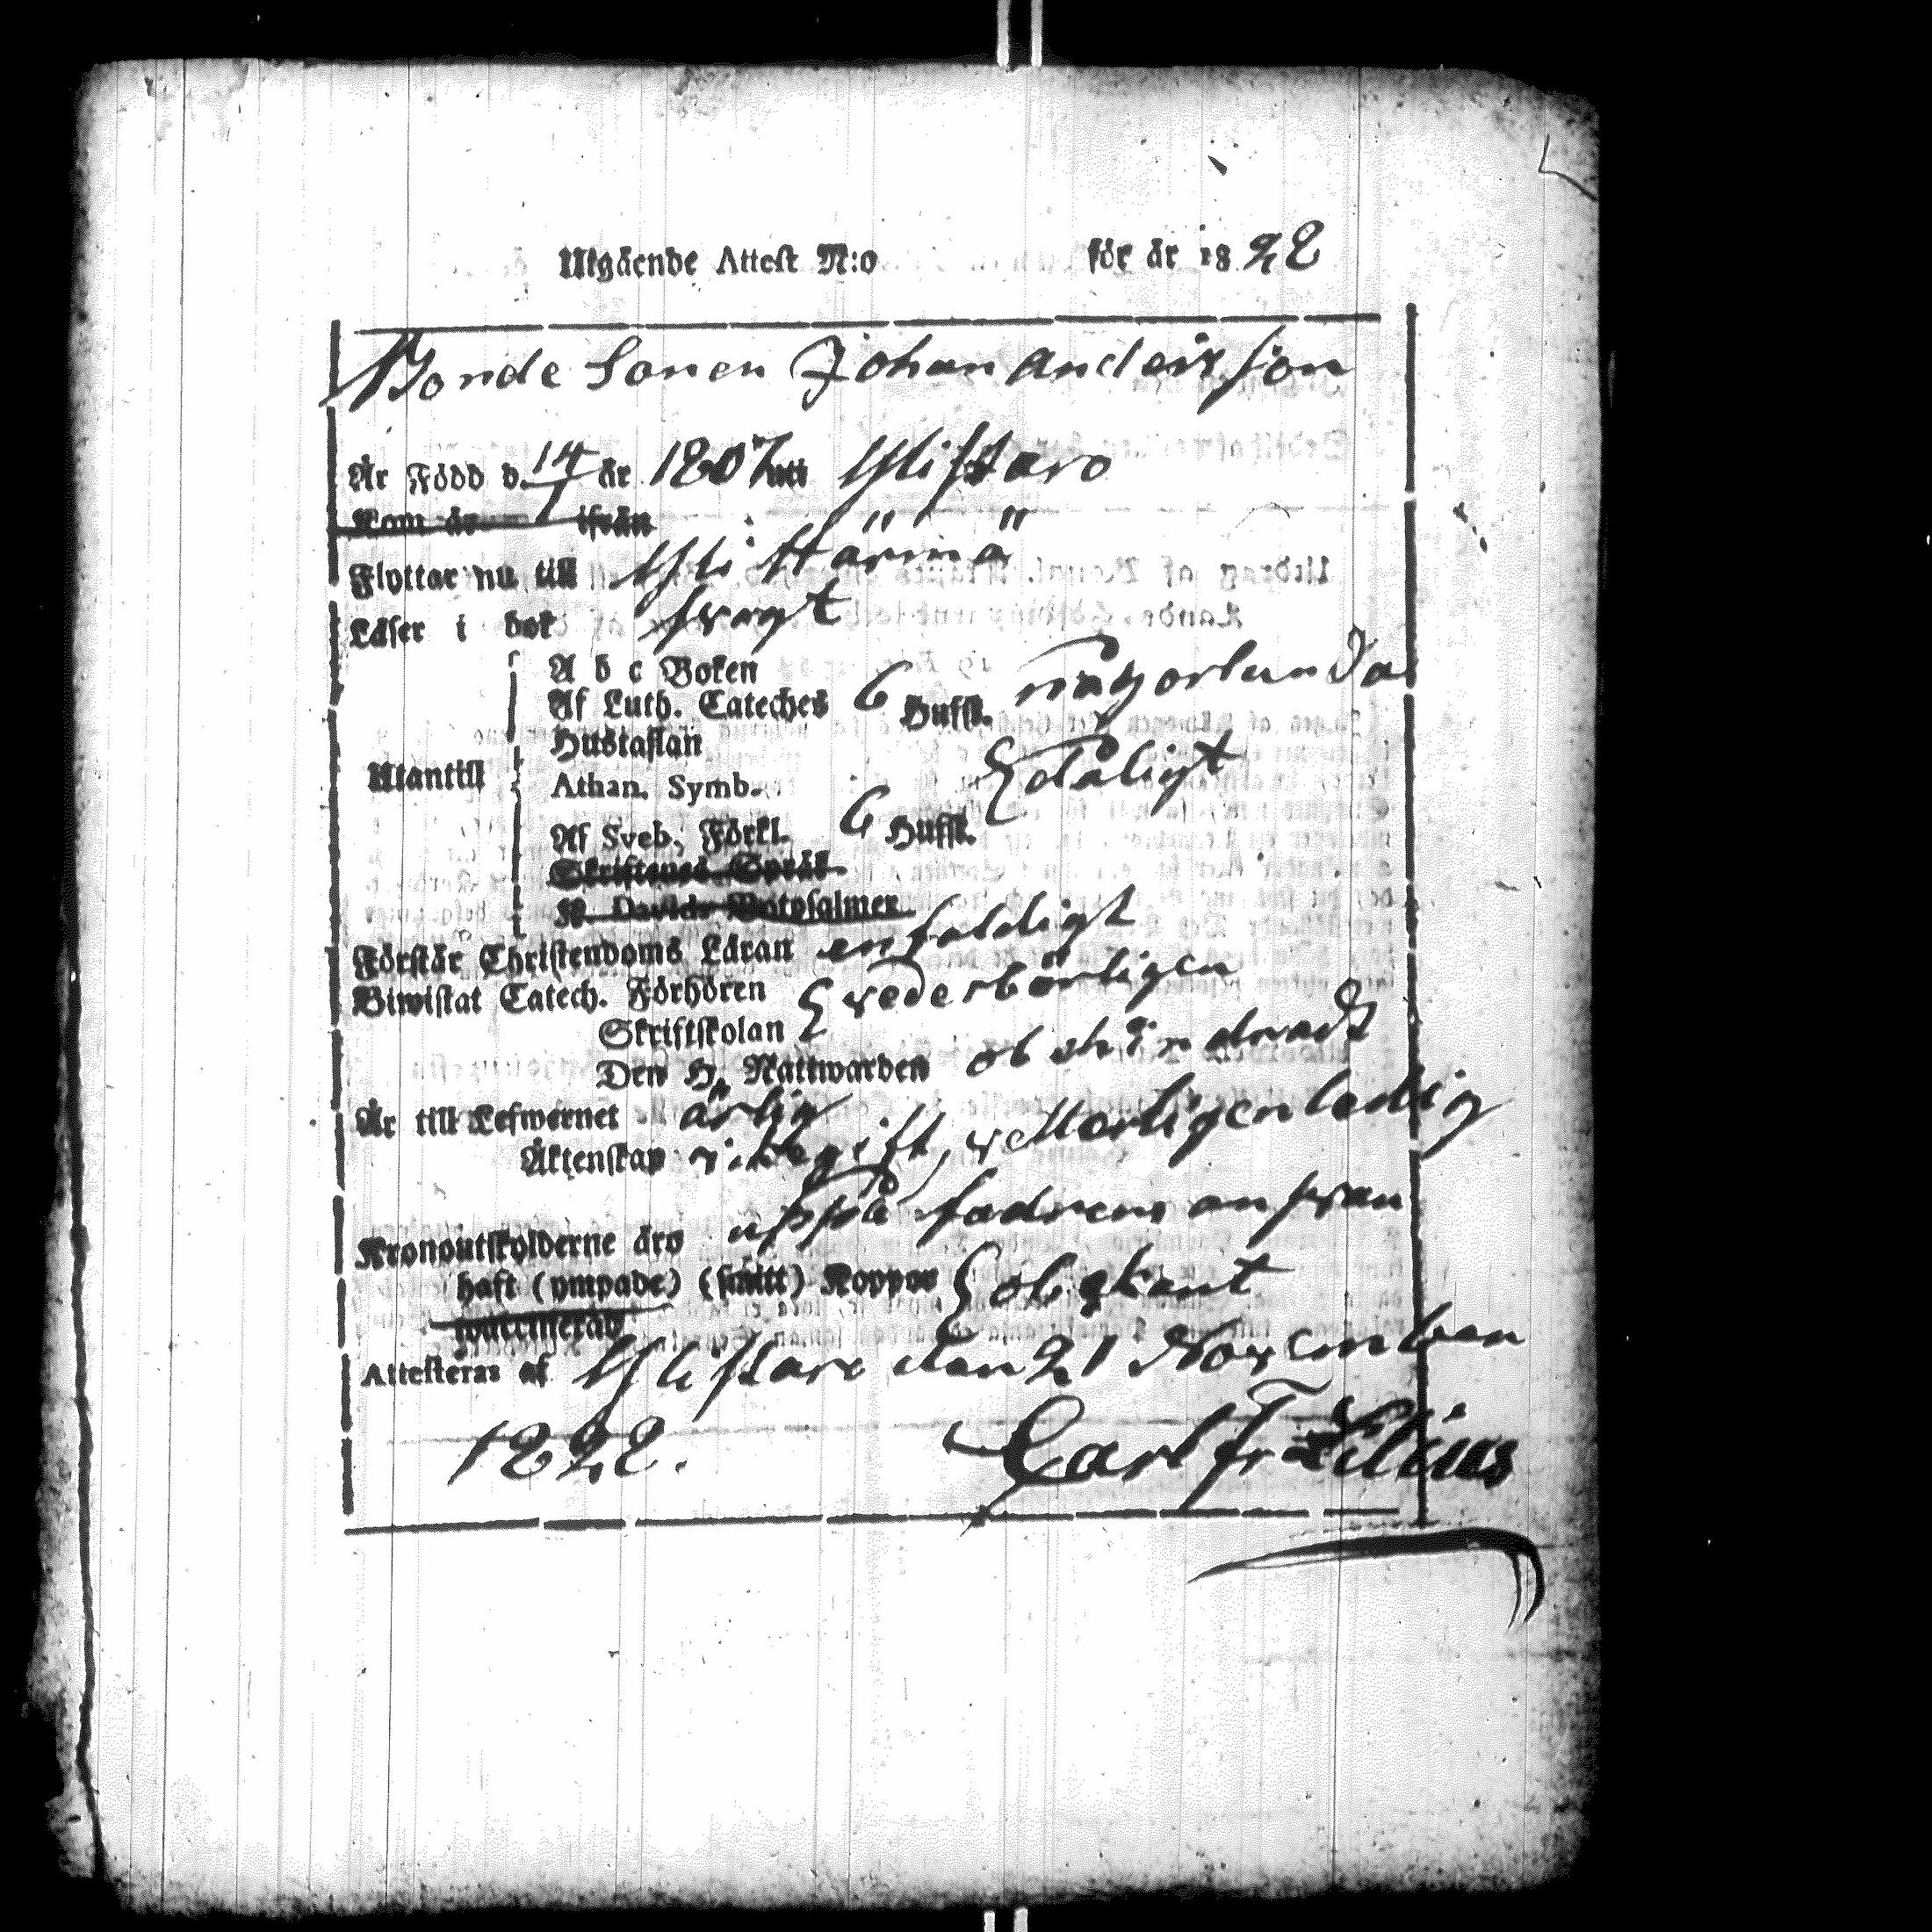 Utgående Attest N:o för år 1822
Bonde Sonen Johan Andersson
Är Född d. 14/1 år 1807 uti Ylistaro
Kom år ifrån
Flyttar nu till Ylistärmä
Läser i bok svagt
A b c Boken
Af Luth. Cateches 6 Hufst. någorlunda
Hustaflan
Utantill
Athan. Symb. dåligt
Af Sveb. Förkl. 6 Hufst.
Skriftenes Språk
K. Davids Botpsalmer
Förstår Christendoms Läran enfaldigt
Biwistat Catech. Förhören vederbörligen
Skriftskolan
Den H. Nattwarden obehindradt
Är till Lefwernet ärlig
Äktenskap ledig
Kronoutskylderne äro uppå fadrens ansvar
haft (ympade) (smitt) Koppor obekant
waccinerad
Attesteras af Ylistaro den 21 November
1822. Carl